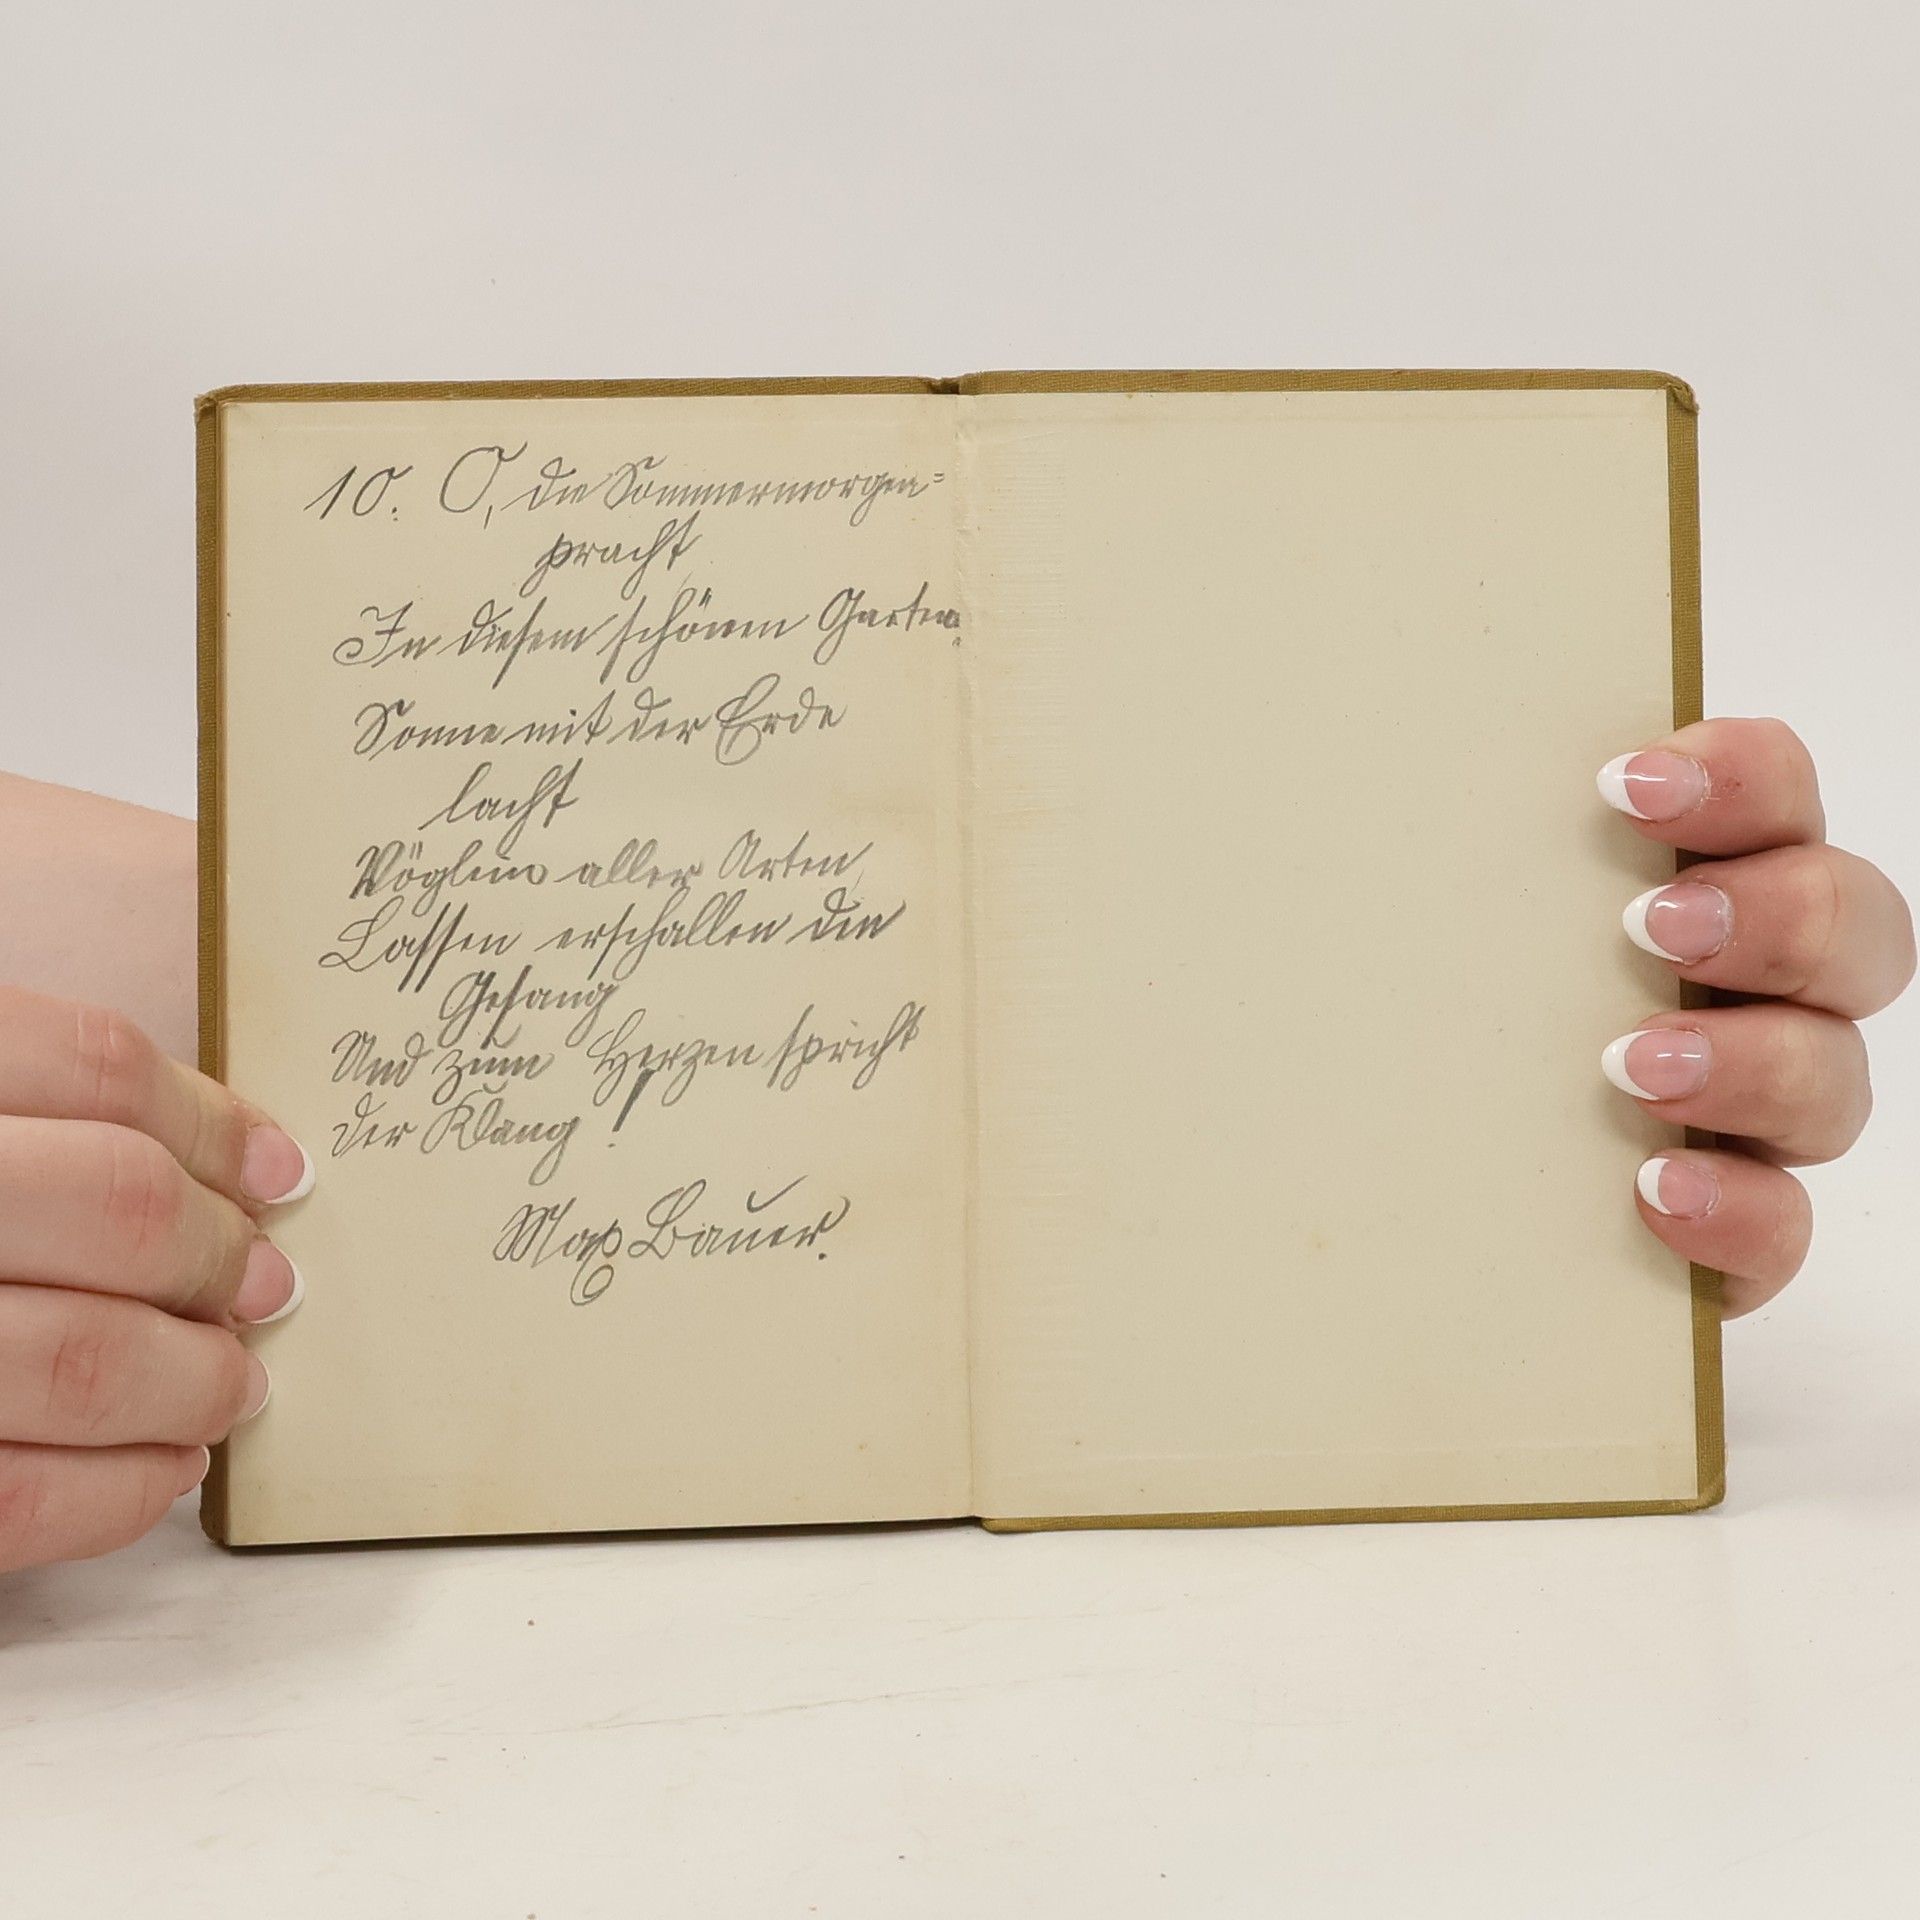 10. O, die Sommermorgen=
pracht
In diesem schönen Garten
Sonne mit der Erde
lacht
Vöglein aller Arten
Lassen erschallen den
Gesang
Und zum Herzen spricht
der Klang!
Max Bauer.